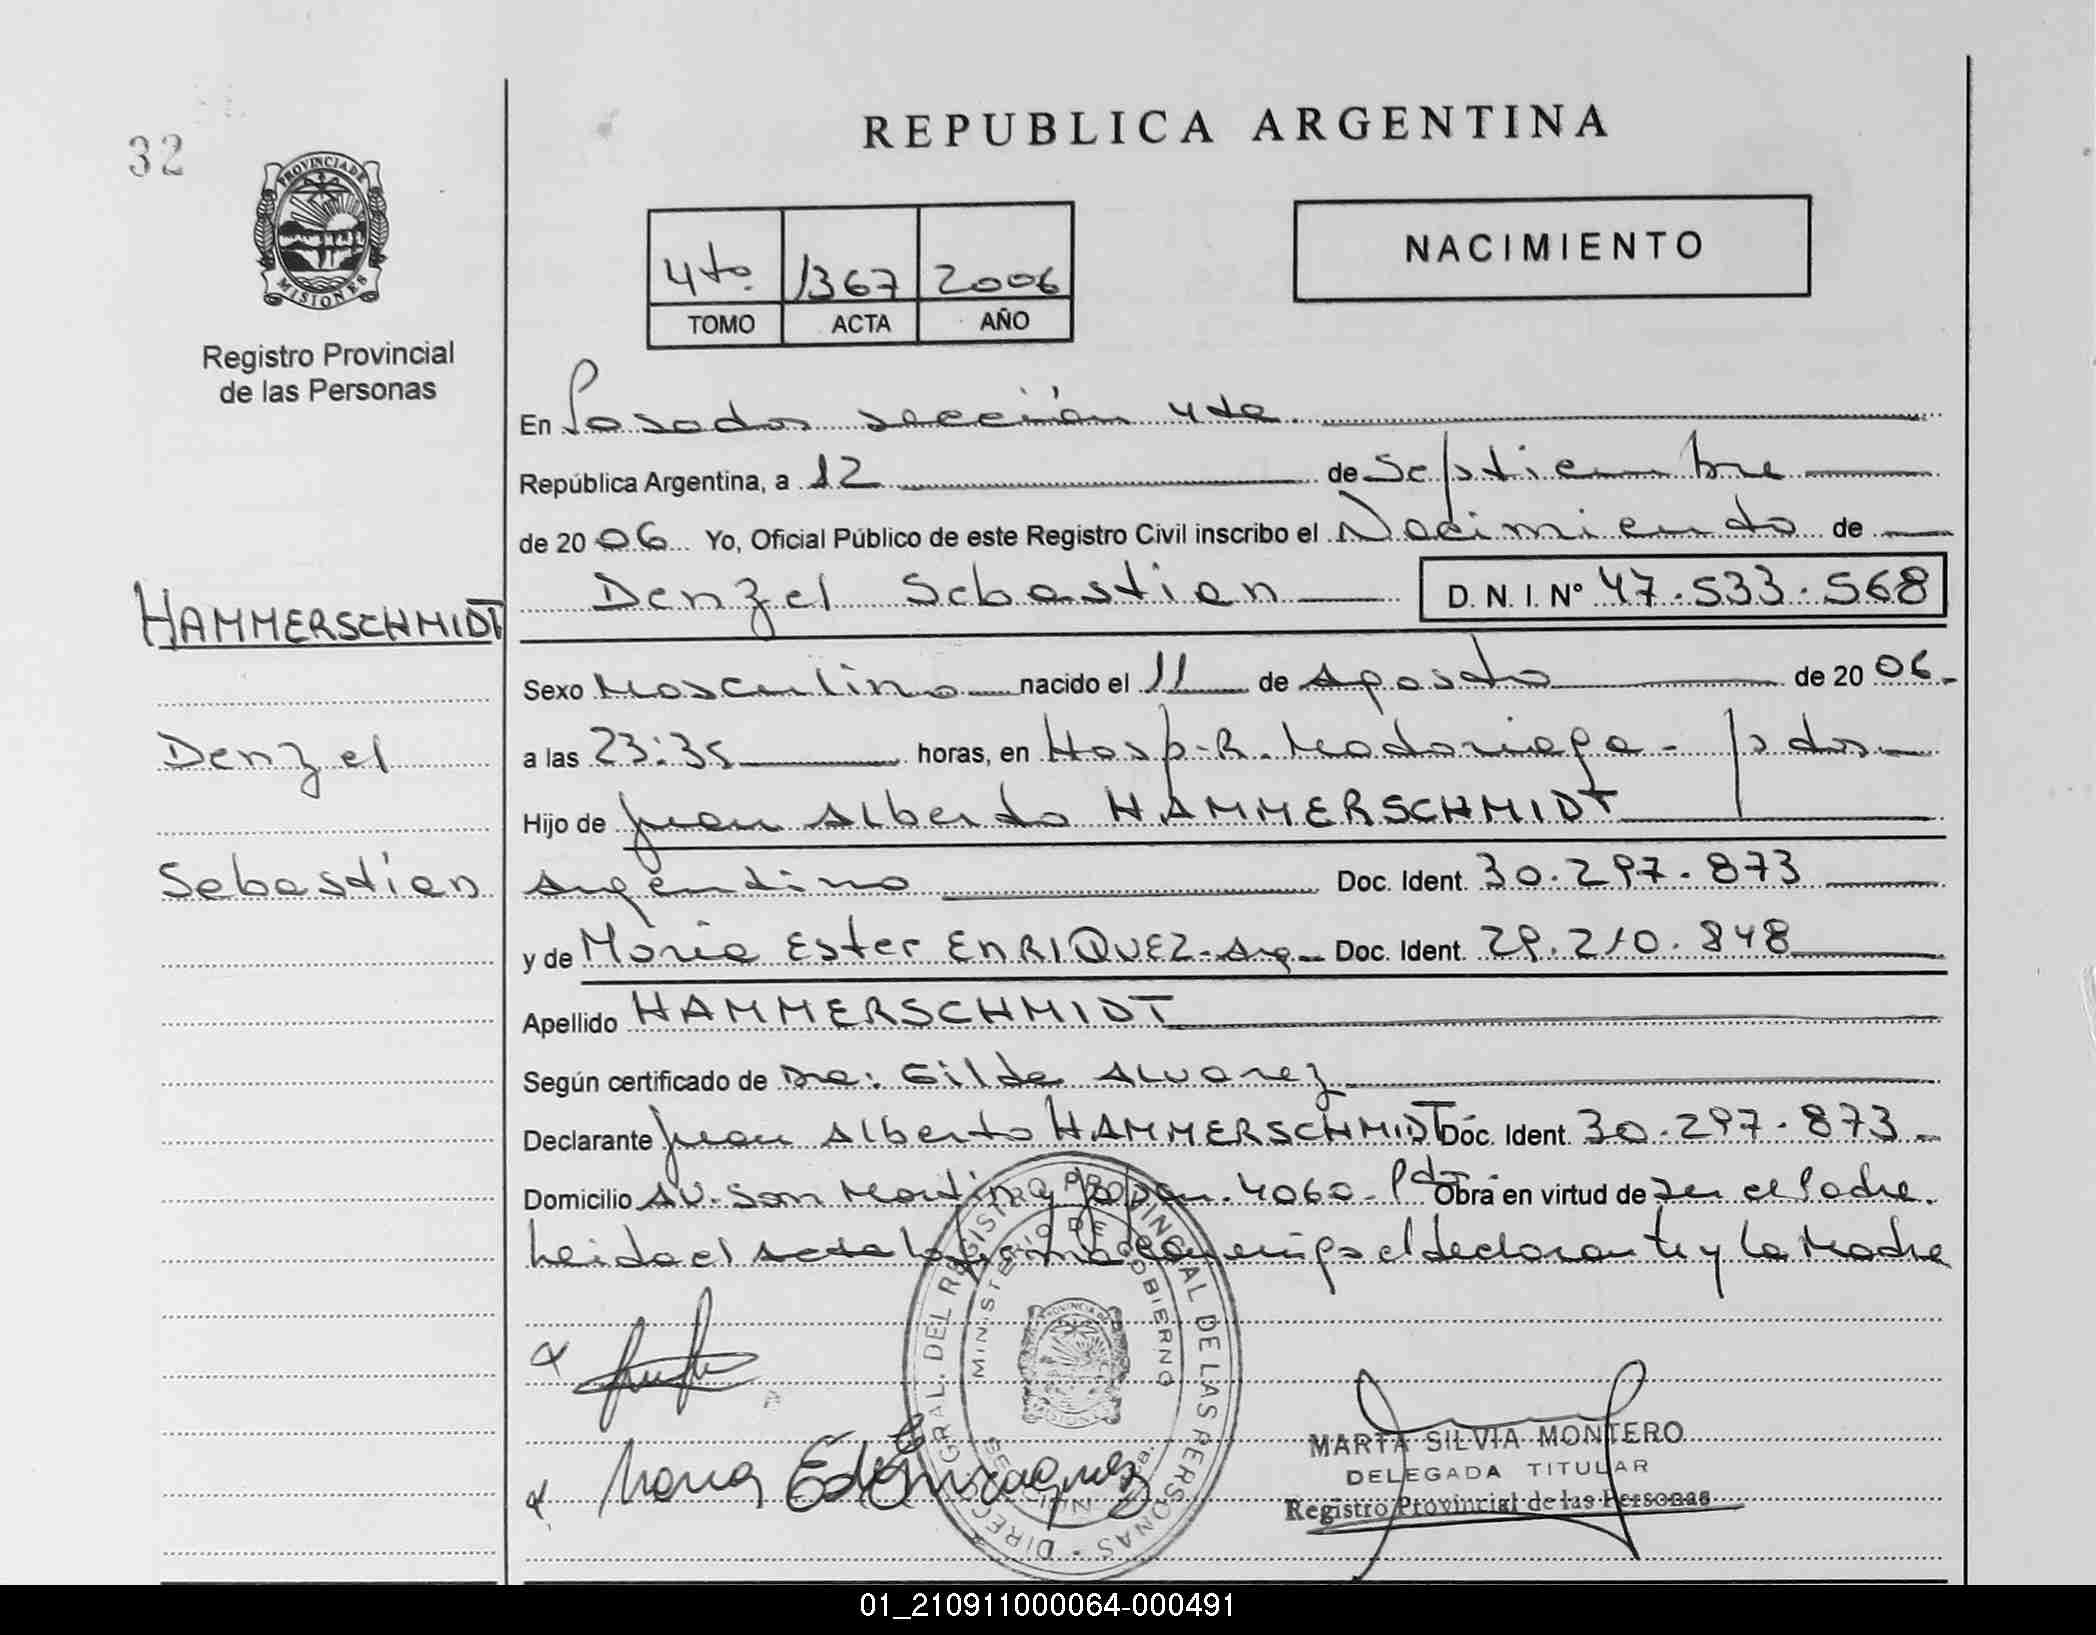 32
PROVINCIA DE
MISIONES
Registro Provincial
de las Personas
REPUBLICA ARGENTINA
4to. 1367 2006
TOMO ACTA AÑO
NACIMIENTO
En Posadas sección 4ta
República Argentina, a 12 de Septiembre
de 2006 Yo, Oficial Público de este Registro Civil inscribo el Nacimiento de
HAMMERSCHMIDT
Denzel Sebastian D.N.I. Nº 47.533.568
Sexo Masculino nacido el 11 de Agosto de 2006.
Denzel
a las 23:35 horas, en Hosp. R. Madariaga - Pdas
Hijo de Juan Alberto HAMMERSCHMIDT
Sebastian
Argentino Doc. Ident. 30.297.873
y de María Ester ENRIQUEZ - Arg Doc. Ident. 29.210.848
Apellido HAMMERSCHMIDT
Según certificado de Dra: Gilda Alvarez
Declarante Juan Alberto HAMMERSCHMIDT Doc. Ident. 30.297.873
Domicilio Av. San Martin y 4060. Obra en virtud de ser el Padre.
Leida el acta la firma conmigo el declarante y la Madre
DIREC. GRAL. DEL REGISTRO PROVINCIAL DE LAS PERSONAS
MINISTERIO DE GOBIERNO
PROVINCIA DE
MISIONES
MARTA SILVIA MONTERO
DELEGADA TITULAR
Registro Provincial de las Personas
01_210911000064-000491